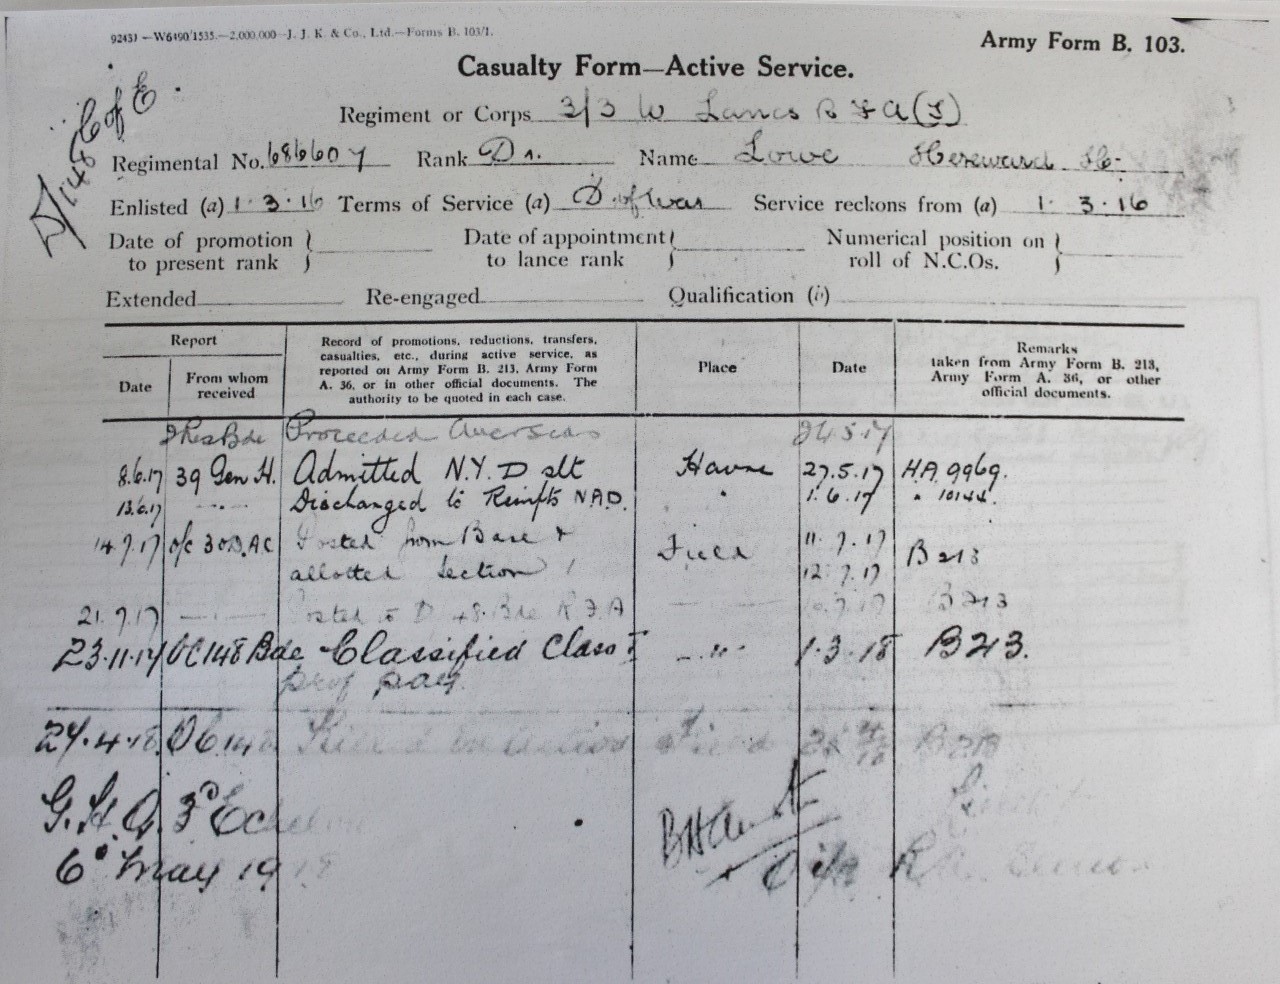 92431—W6490/1535.—2,000,000—J. J. K. & Co., Ltd.—Forms B. 103/1.
Army Form B. 103.
Casualty Form—Active Service.
C of E.
D/148
Regiment or Corps 3/3 W Lancs R F A (T)
Regimental No. 686607 Rank Dr. Name Lowe Hereward H.
Enlisted (a) 1·3·16 Terms of Service (a) D. of War Service reckons from (a) 1·3·16
Date of promotion to present rank } Date of appointment to lance rank } Numerical position on roll of N.C.Os. }
Extended Re-engaged Qualification (b)
Report
Date
From whom received
Record of promotions, reductions, transfers,
casualties, etc., during active service, as
reported on Army Form B. 213, Army Form
A. 36, or in other official documents. The
authority to be quoted in each case.
Place
Date
Remarks
taken from Army Form B. 213,
Army Form A. 36, or other
official documents.
Res Bde Proceeded Overseas 26.5.17
8.6.17 39 Gen H. Admitted N.Y.D slt Havre 27.5.17 H.A. 9969.
13.6.17 —··— Discharged to Reinfts N.A.D. " 1.6.17 " 10144.
14.7.17 o/c 30 D.A.C Posted from Base & Field 11.7.17 B 213
allotted Section 1 12.7.17
21.7.17 — Posted to D 48 Bde R.F.A — B213
23.11.17 OC 148 Bde Classified Class I —"— 1.3.18 B213.
prof pay.
27.4.18. OC 148 Killed in Action Field 4/18 B213
G.H.Q. 3rd Echelon
6 May 1918